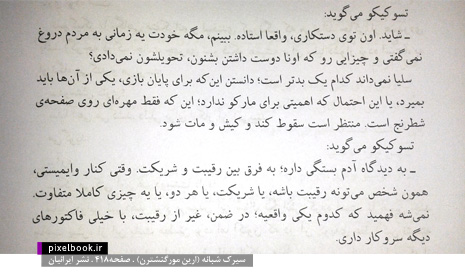 تسوکیکو می‌گوید:
ـ شاید. اون توی دستکاری، واقعا استاده. ببینم، مگه خودت یه زمانی به مردم دروغ
نمی‌گفتی و چیزایی رو که اونا دوست داشتن بشنون، تحویلشون نمی‌دادی؟
سلیا نمی‌داند کدام یک بدتر است؛ دانستن این‌که برای پایان بازی، یکی از آن‌ها باید
بمیرد، یا این احتمال که اهمیتی برای مارکو ندارد؛ این که فقط مهره‌ای روی صفحه‌ی
شطرنج است. منتظر است سقوط کند و کیش و مات شود.
تسوکیکو می‌گوید:
ـ به دیدگاه آدم بستگی داره؛ به فرق بین رقیبت و شریکت. وقتی کنار وایمیستی،
همون شخص می‌تونه رقیبت باشه، یا شریکت، یا هر دو، یا یه چیزی کاملا متفاوت.
نمی‌شه فهمید که کدوم یکی واقعیه؛ در ضمن، غیر از رقیبت، با خیلی فاکتورهای
دیگه سروکار داری.
pixelbook.ir
سیرک شبانه (ارین مورگنشترن) . صفحه۴۱۸ . نشر ایرانیان